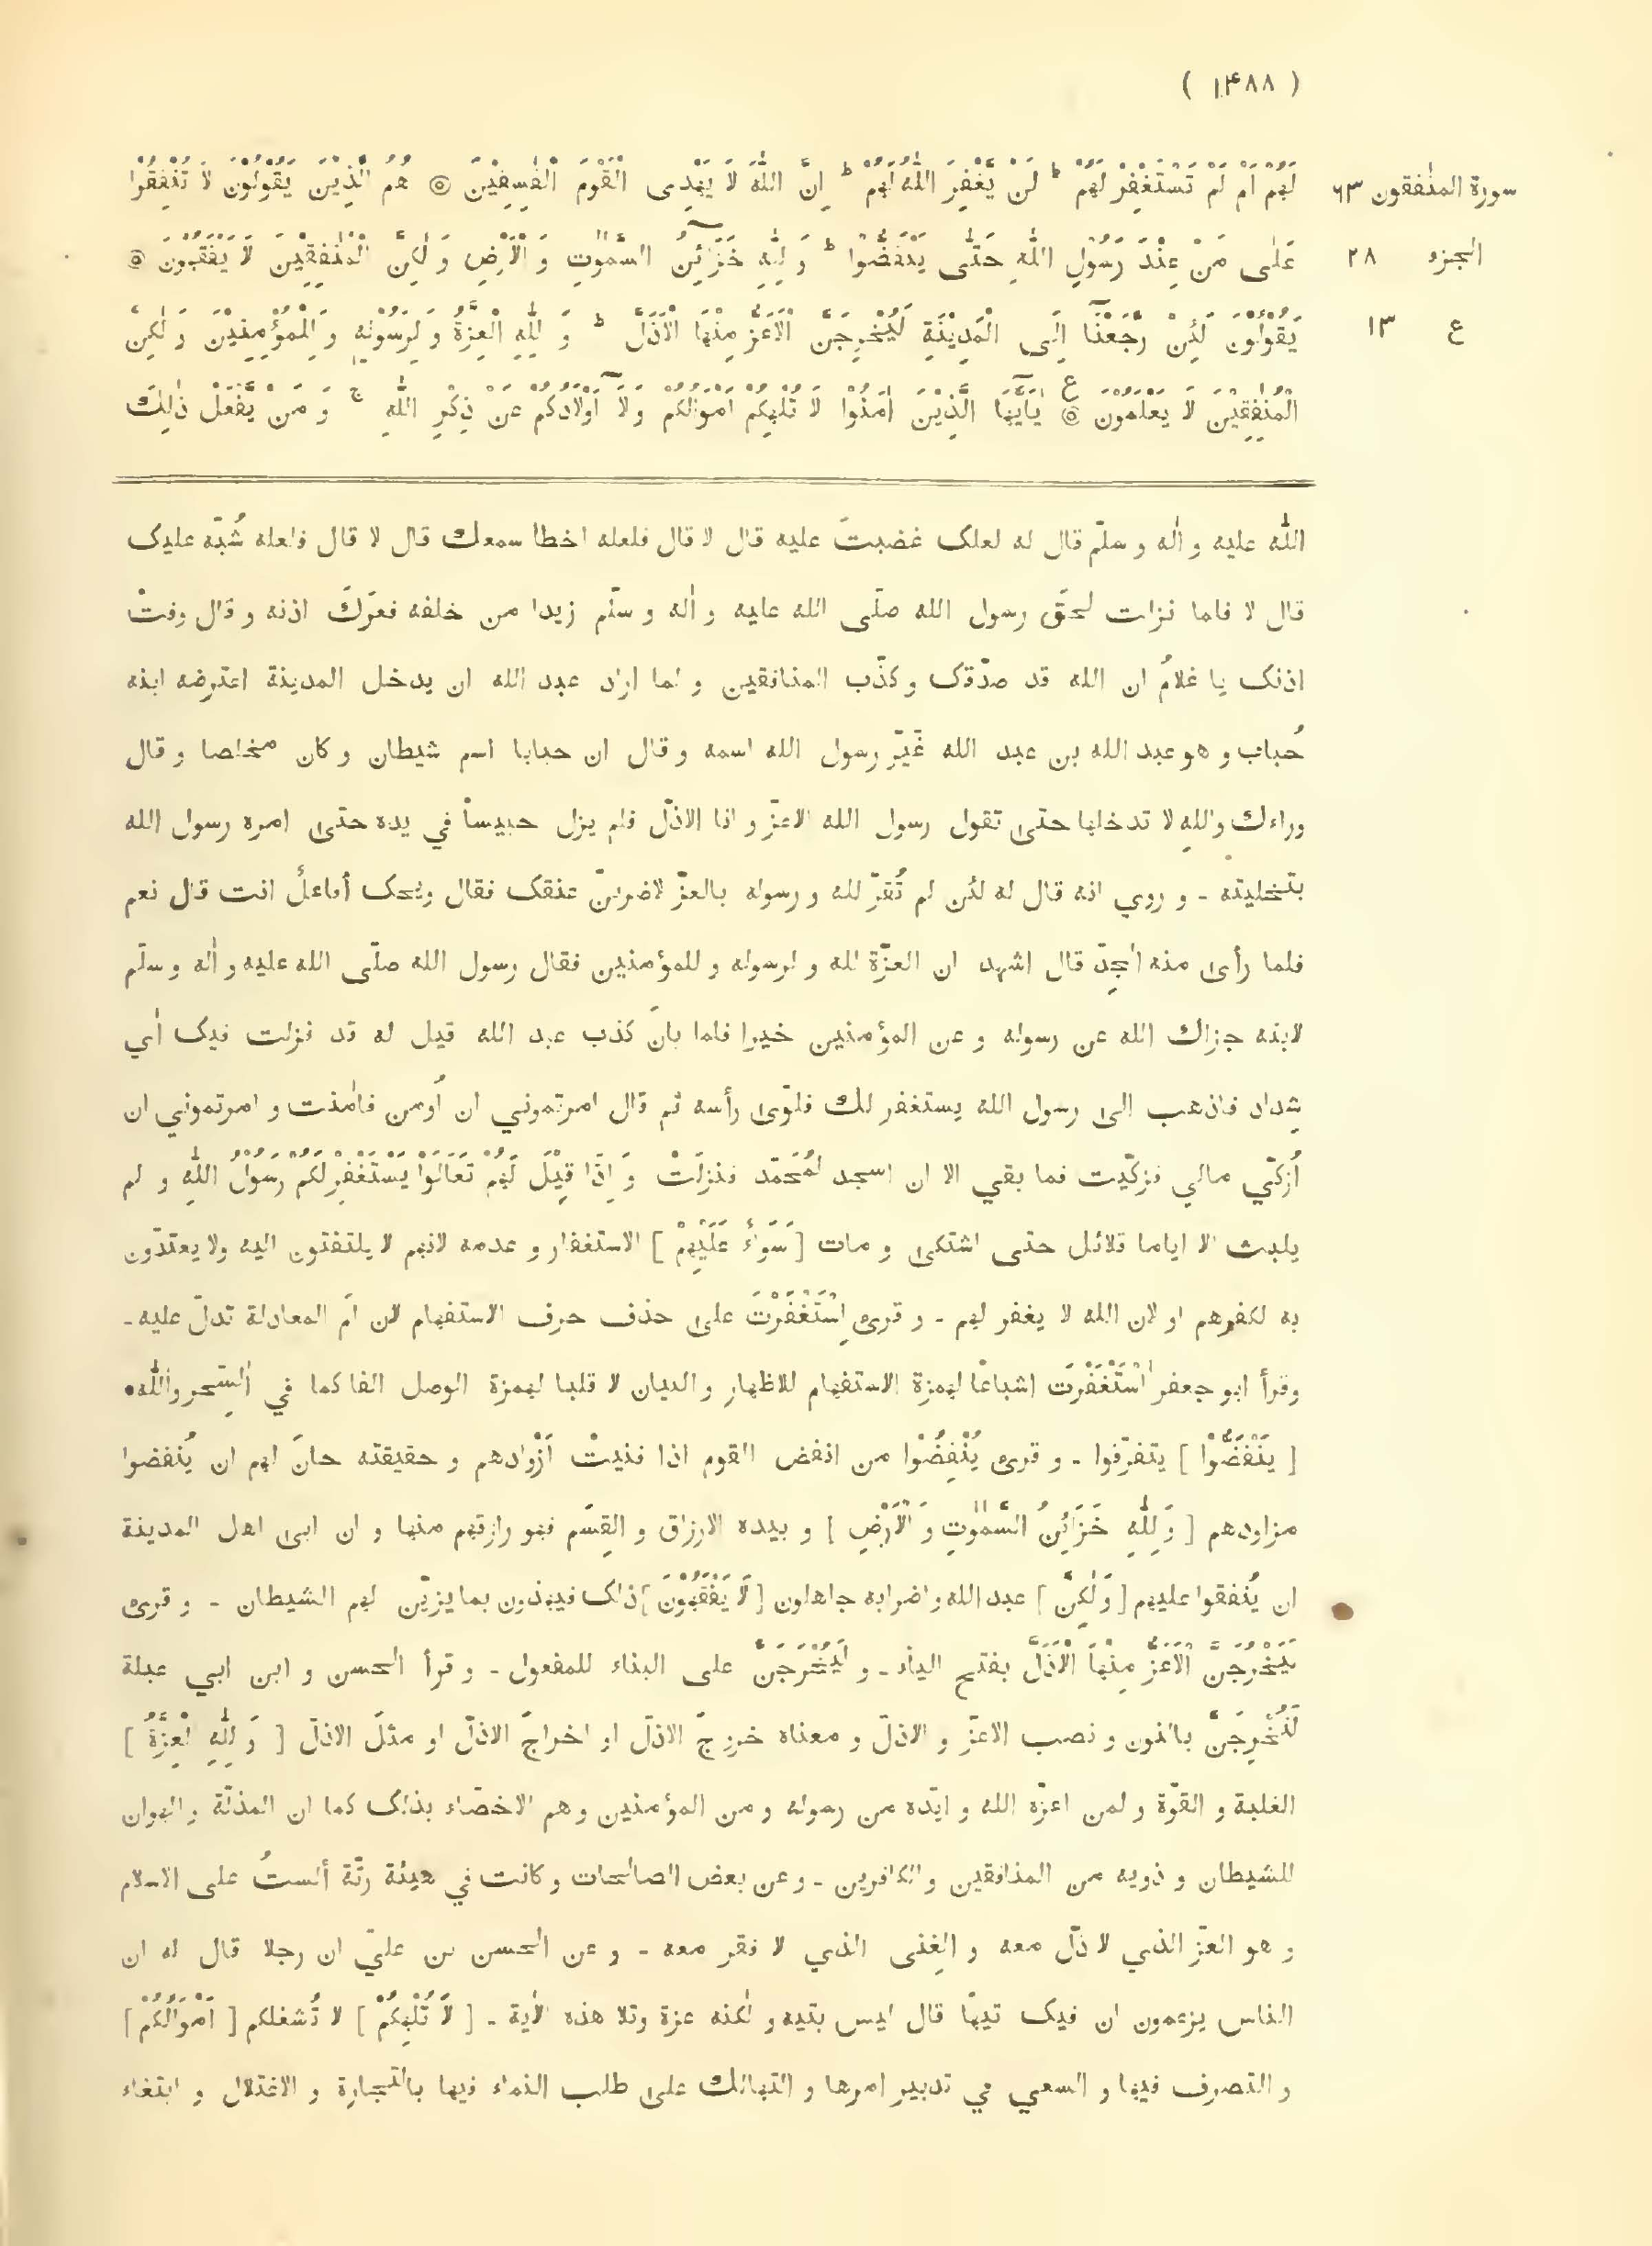 ( ١٤٨٨ )
سورة المنٰفقون ٦٣
الجزء ٢٨
ع ١٣
لَهُمْ اَمْ لَمْ تَسْتَغْفِرْ لَهُمْ ط لَنْ يَّغْفِرَ اللّٰهُ لَهُمْ ط اِنَّ اللّٰهَ لَا يَهْدِى الْقَوْمَ الْفٰسِقِيْنَ ۞ هُمُ الَّذِيْنَ يَقُوْلُوْنَ لَا تُنْفِقُوْا
عَلٰى مَنْ عِنْدَ رَسُوْلِ اللّٰهِ حَتّٰى يَنْفَضُّوْا ط وَ لِلّٰهِ خَزَآئِنُ السَّمٰوٰتِ وَ الْاَرْضِ وَ لٰكِنَّ الْمُنٰفِقِيْنَ لَا يَفْقَهُوْنَ ۞
يَقُوْلُوْنَ لَئِنْ رَّجَعْنَآ اِلَى الْمَدِيْنَةِ لَيُخْرِجَنَّ الْاَعَزُّ مِنْهَا الْاَذَلَّ ط وَ لِلّٰهِ الْعِزَّةُ وَ لِرَسُوْلِهٖ وَ لِلْمُؤْمِنِيْنَ وَ لٰكِنَّ
الْمُنٰفِقِيْنَ لَا يَعْلَمُوْنَ ۞ ع يٰٓاَيُّهَا الَّذِيْنَ اٰمَنُوْا لَا تُلْهِكُمْ اَمْوَالُكُمْ وَلَآ اَوْلَادُكُمْ عَنْ ذِكْرِ اللّٰهِ ج وَ مَنْ يَّفْعَلْ ذٰلِكَ
اللّٰه عليه و اٰله و سلّم قال له لعلك غضبتَ عليه قال لا قال فلعله اخطأ سمعك قال لا قال فلعله شُبّه عليك
قال لا فلما نزلت لحقَ رسول الله صلّى الله عليه و اٰله و سلّم زيدا من خلفه فعرَكَ اذنه و قال وفتْ
اذنك يا غلامُ ان الله قد صدّقك و كذّب المنافقين و لما اراد عبد الله ان يدخل المدينة اعترضه ابنه
حُباب و هو عبد الله بن عبد الله غَيّر رسول الله اسمه و قال ان حبابا اسم شيطان و كان مخلصا و قال
وراءك واللهِ لا تدخلها حتى تقول رسول الله الاعزّ و انا الاذلّ فلم يزل حبيساً في يده حتى امره رسول الله
بتخليته - و روي انه قال له لئن لم تُقرّ لله و رسوله بالعزّ لاضربنّ عنقك فقال ويحك أفاعلٌ انت قال نعم
فلما رأى منه الجِدّ قال اشهد ان العزّة لله و لرسوله و للمؤمنين فقال رسول الله صلّى الله عليه و اٰله و سلّم
لابنه جزاك الله عن رسوله و عن المؤمنين خيرا فلما بانَ كذب عبد الله قيل له قد نزلت فيك اٰي
شِداد فاذهب الى رسول الله يستغفر لك فلوّى رأسه ثم قال امرتموني ان اُومن فاٰمنت و امرتموني ان
اُزكّي مالي فزكّيت فما بقي الا ان اسجد لمُحَمّد فنزلتْ وَ اِذَا قِيْلَ لَهُمْ تَعَالَوْا يَسْتَغْفِرْ لَكُمْ رَسُوْلُ اللّٰهِ و لم
يلبث الا اياما قلائل حتى اشتكى و مات [ سَوَاءٌ عَلَيْهِمْ ] الاستغفار و عدمه لانهم لا يلتفتون اليه ولا يعتدّون
به لكفرهم او لان الله لا يغفر لهم - و قرئ اِسْتَغْفَرْتَ على حذف حرف الاستفهام لان اَم المعادلة تدلّ عليه -
وقرأ ابو جعفر اٰسْتَغْفَرْتَ اشباعًا لهمزة الاستفهام للاظهار و البيان لا قلبا لهمزة الوصل الفا كما في اٰلسِّحر واٰلله•
[ يَنْفَضُّوْا ] يتفرّقوا - و قرئ يُنْفِضُوْا من انفض القوم اذا فنيتْ اَزْوادهم و حقيقته حانَ لهم ان يُنفضوا
مزاودهم [ وَ لِلّٰهِ خَزَائِنُ السَّمٰوٰتِ وَ الْاَرْضِ ] و بيده الارزاق و القِسَم فهو رازقهم منها و ان ابى اهل المدينة
ان يُنفقوا عليهم [ وَ لٰكِنَّ ] عبد الله و اضرابه جاهلون [ لَا يَفْقَهُوْنَ ] ذلك فيهذون بما يزيّن لهم الشيطان - و قرئ
لَيَخْرُجَنَّ الْاَعَزُّ مِنْهَا الْاَذَلَّ بفتح الياء - و لَيُخْرَجَنَّ على البناء للمفعول - و قرأ الحسن و ابن ابي عبلة
لَنُخْرِجَنَّ بالنون و نصب الاعزّ و الاذلّ و معناه خروجَ الاذلّ او اخراجَ الاذلّ او مثلَ الاذلّ [ وَ لِلّٰهِ الْعِزَّةُ ]
الغلبة و القوّة و لمن اعزّه الله و ايّده من رسوله و من المؤمنين و هم الاخصّاء بذلك كما ان المذلّة والهوان
للشيطان و ذويه من المنافقين و الكافرين - و عن بعض الصالحات و كانت في هيئة رثّة ألستُ على الاسلام
و هو العزّ الذي لا ذلّ معه و الغِنى الذي لا فقر معه - و عن الحسن بن عليّ ان رجلا قال له ان
الناس يزعمون ان فيك تيهًا قال ليس بتيه و لٰكنه عزة وتلا هذه الاٰية - [ لَا تُلْهِكُمْ ] لا تُشغلكم [ اَمْوَالُكُمْ ]
و التصرف فيها و السعي في تدبير امرها و التهالك على طلب النماء فيها بالتجارة و الاغتلال و ابتغاء